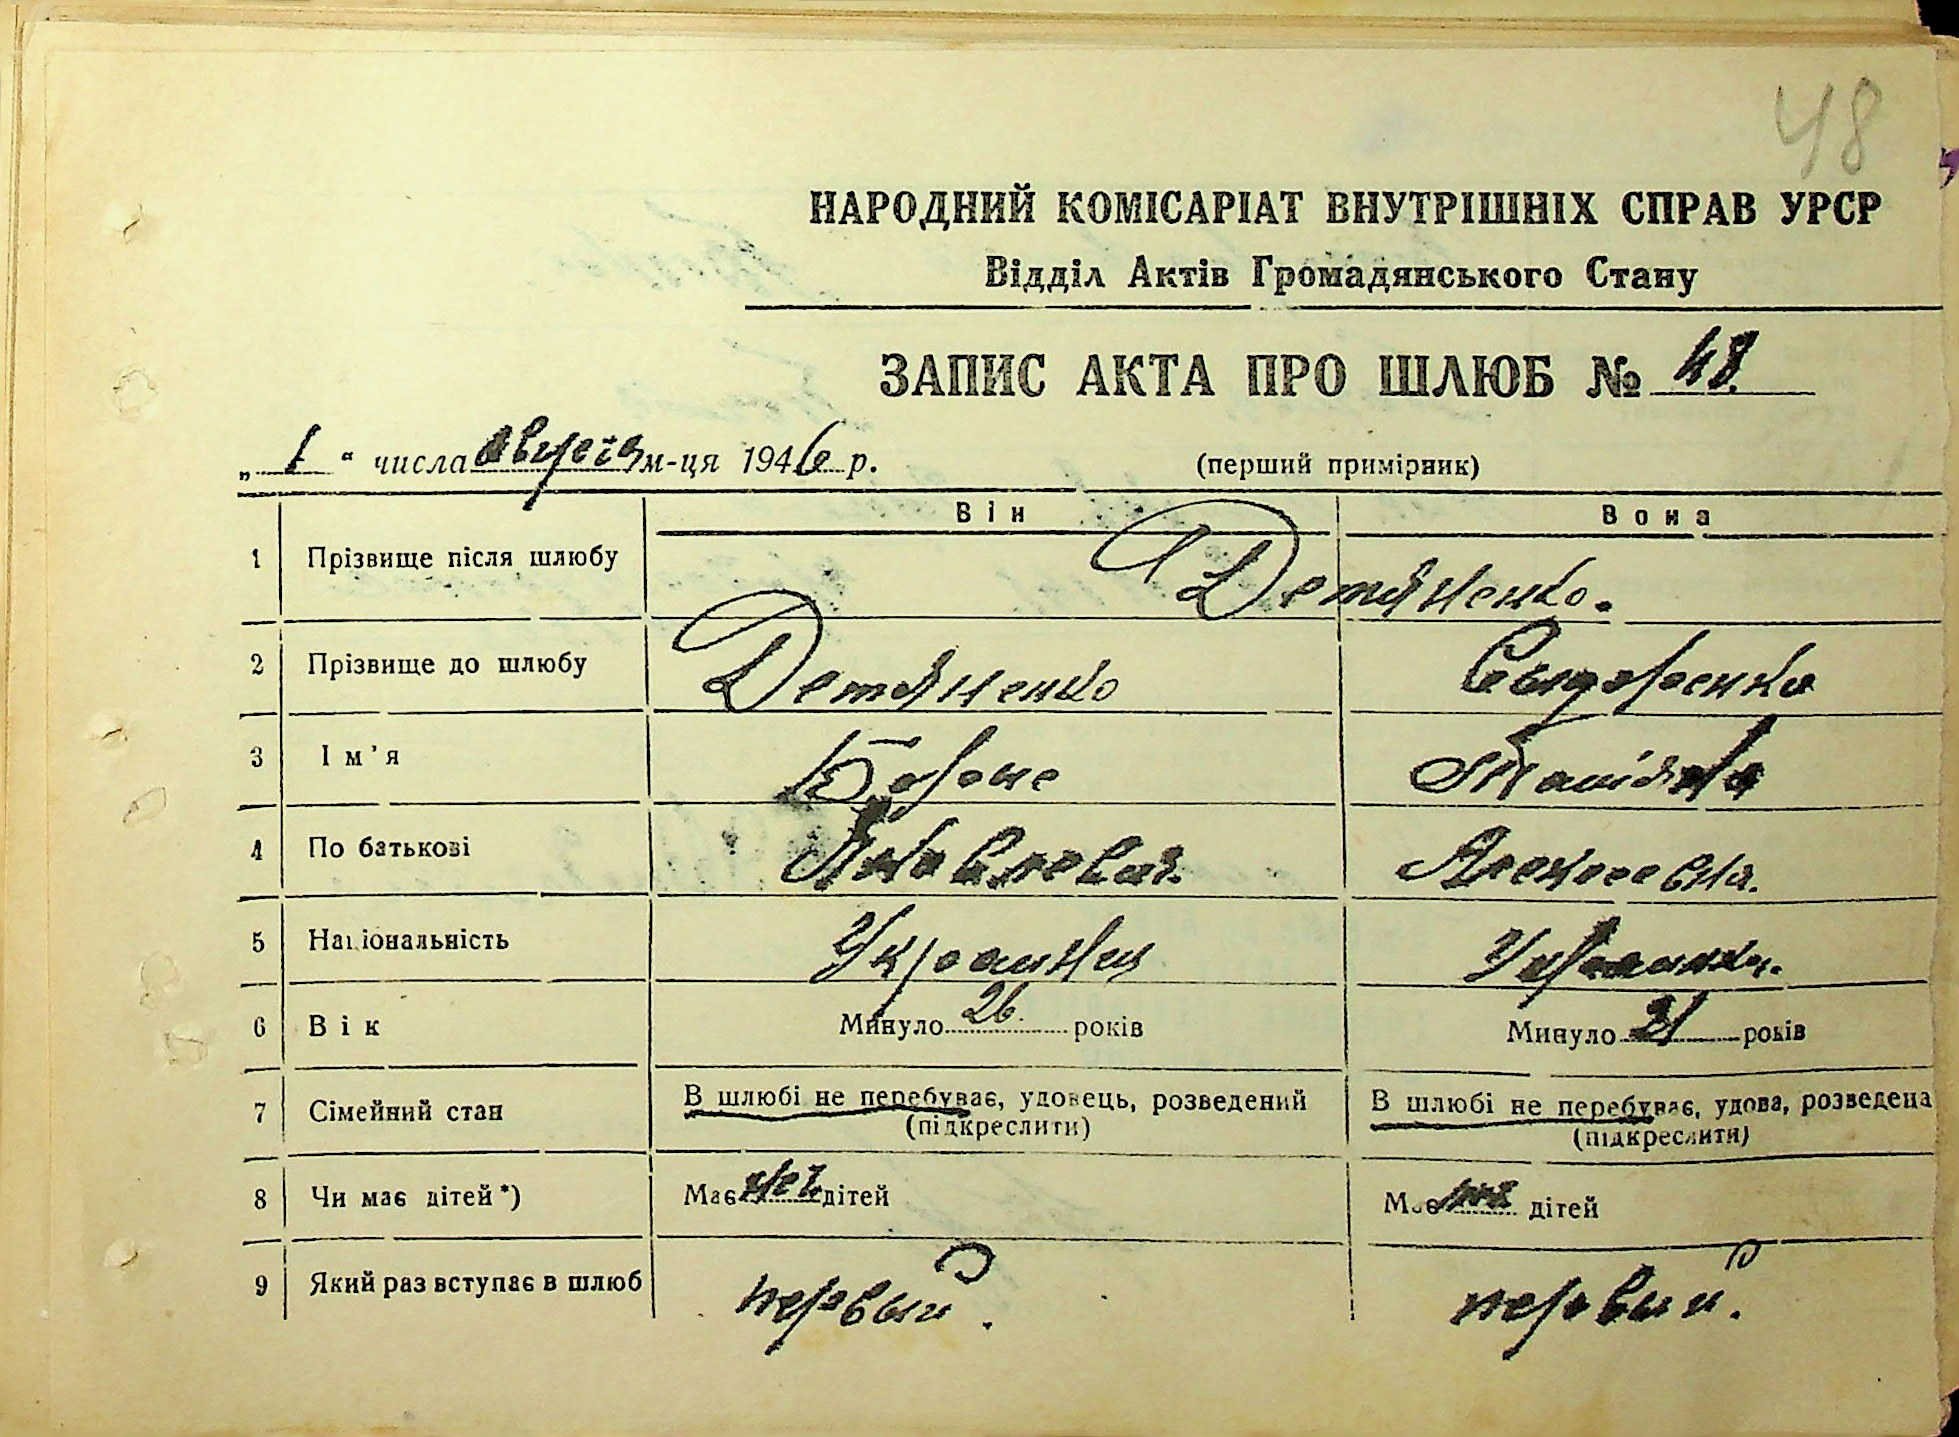 48
НАРОДНИЙ КОМІСАРІАТ ВНУТРІШНІХ СПРАВ УРСР
Відділ Актів Громадянського Стану
ЗАПИС АКТА ПРО ШЛЮБ № 48.
„ 1 “ числа августа м-ця 1946 р. (перший примірник)
Він Вона
1 Прізвище після шлюбу Детяненко.
2 Прізвище до шлюбу Детяненко Сыдоренко
3 Ім'я
4 По батькові Яковлевич. Алексеевна.
5 Національність Украинец Украинка.
6 Вік Минуло 26 років Минуло 21 років
7 Сімейний стан В шлюбі не перебуває, удовець, розведений В шлюбі не перебуває, удова, розведена
(підкреслити) (підкреслити)
8 Чи має дітей*) Має нет дітей Має нет дітей
9 Який раз вступає в шлюб первый. первый.